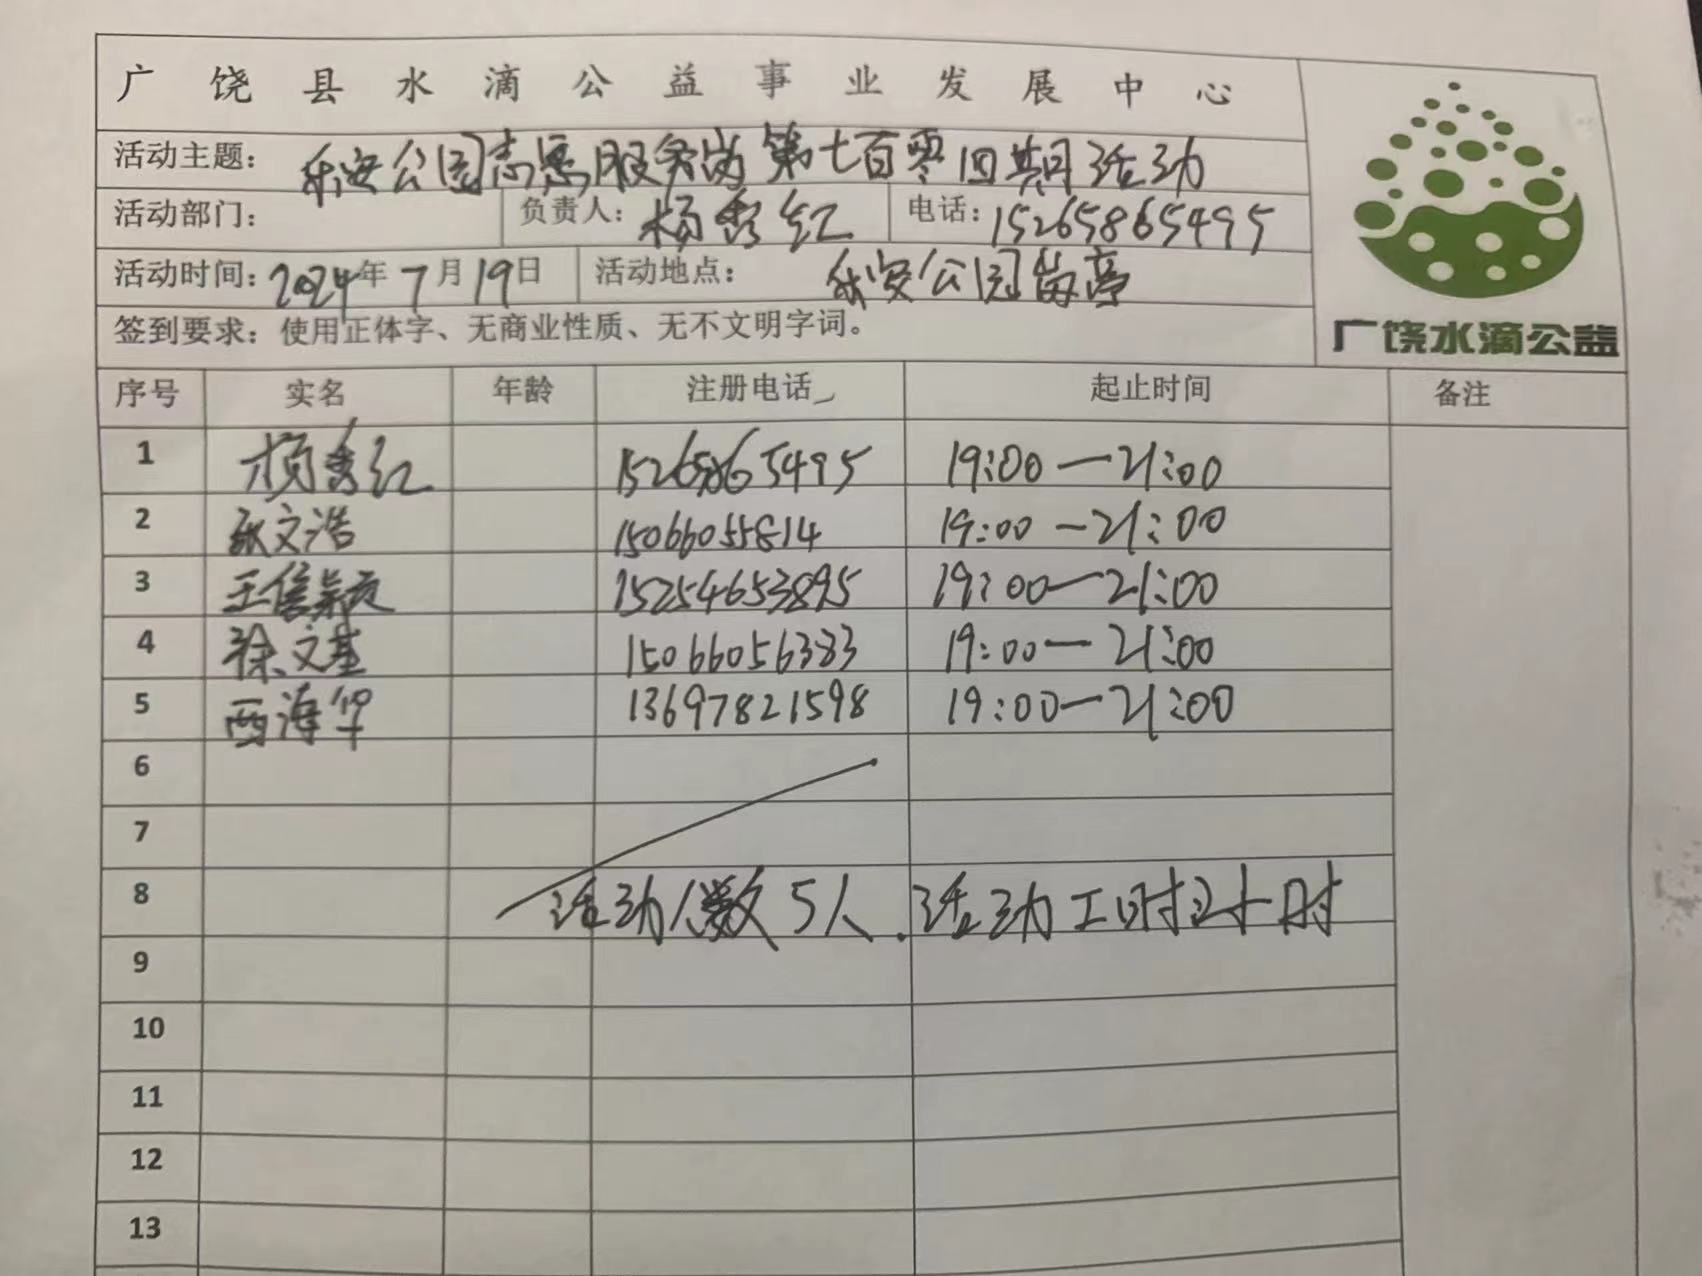 广饶县水滴公益事业发展中心
活动主题：乐安公园志愿服务岗第七百零四期活动
活动部门： 负责人：杨秀红 电话：15265865495
活动时间：2024年7月19日 活动地点：乐安公园岗亭
签到要求：使用正体字、无商业性质、无不文明字词。
广饶水滴公益
序号 实名 年龄 注册电话 起止时间 备注
1 杨秀红 15265865495 19:00—21:00
2 张文浩 15066055814 19:00—21:00
3 15254653895 19:00—21:00
4 徐文基 15066056383 19:00—21:00
5 西海华 13697821598 19:00—21:00
6
7
8 活动人数5人.活动工时2小时
9
10
11
12
13